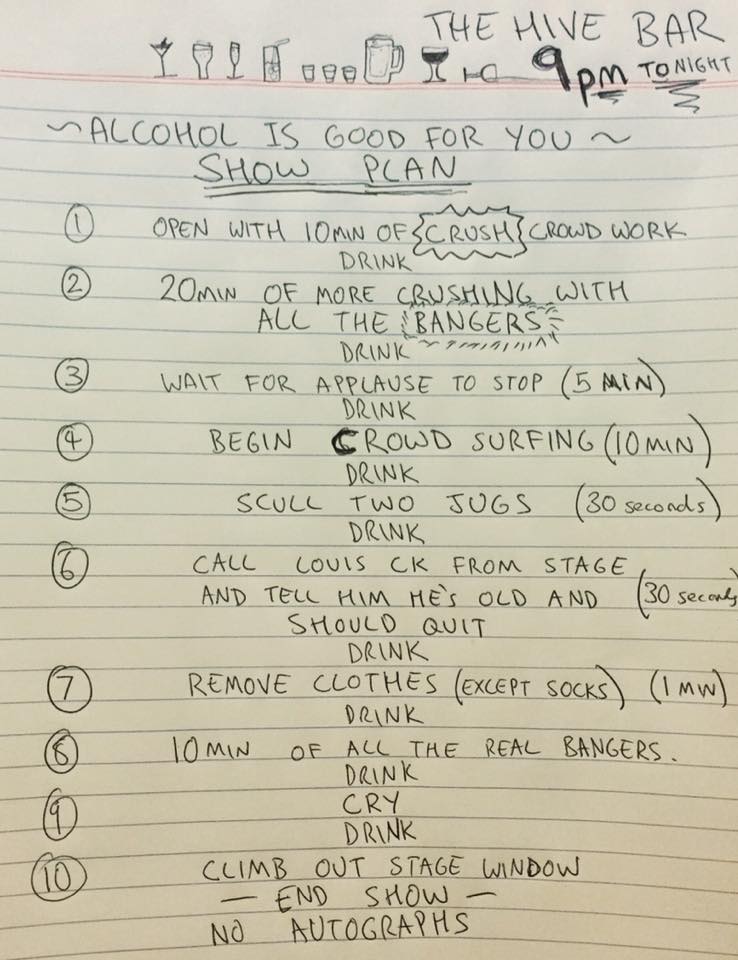 THE HIVE BAR
9pm TONIGHT
~ALCOHOL IS GOOD FOR YOU~
SHOW PLAN
1 OPEN WITH 10MIN OF CRUSH CROWD WORK
DRINK
2 20MIN OF MORE CRUSHING WITH
ALL THE BANGERS
DRINK
3 WAIT FOR APPLAUSE TO STOP (5 MIN)
DRINK
4 BEGIN CROWD SURFING (10MIN)
DRINK
5 SCULL TWO JUGS (30 seconds)
DRINK
6 CALL LOUIS CK FROM STAGE
AND TELL HIM HE'S OLD AND (30 seconds)
SHOULD QUIT
DRINK
7 REMOVE CLOTHES (EXCEPT SOCKS) (1 MIN)
DRINK
8 10MIN OF ALL THE REAL BANGERS.
DRINK
9 CRY
DRINK
10 CLIMB OUT STAGE WINDOW
— END SHOW —
NO AUTOGRAPHS